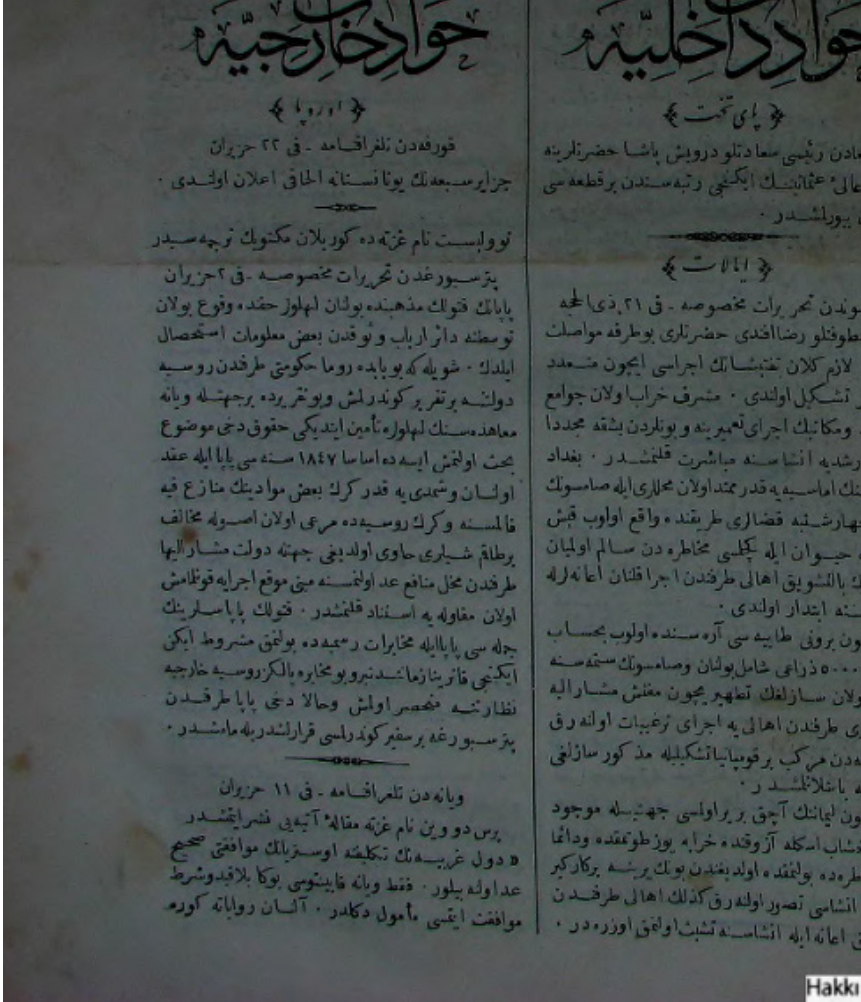 حوادث داخلیه
پای تخت
رئیسی سعادتلو درویش پاشا حضرتلرینه
عثمانینك ایكنجی رتبه سندن بر قطعه سی
بیورلمشدر ٠
ایالات
تحریرات مخصوصه ـ فی ٢١ ذی الحجه
رضا افندی حضرتلری بو طرفه مواصلت
لازم كلان تفتیشاتك اجراسی ایچون متعدد
تشكیل اولندی ٠ مشرف خراب اولان جوامع
ومكاتبك اجرای تعمیرینه و بونلردن بشقه مجددا
رشدیه انشاسنه مباشرت قلنمشدر ٠ بغداد
اماسیه یه قدر ممتد اولان محللری ایله صامسونك
قضالری طریقنده واقع اولوب قیش
حیوان ایله كچلمسی مخاطره دن سالم اولمیان
بالتشویق اهالی طرفندن اجرا قلنان اعانه لرله
ابتدار اولندی ٠
برونی طابیه سی آره سنده اولوب بحساب
ذراعی شامل بولنان وصامسونك سمتنه
سازلغك تطهیریچون مفتش مشار الیه
طرفندن اهالی یه اجرای ترغیبات اولنه رق
مركب بر قومپانیا تشكیلیله مذكور سازلغی
باشلانلمشدر ٠
لیماننك آچق بر یر اولمسی جهتیله موجود
اسكله آز وقتده خرابه یوز طوتمقده ودائما
بولنمقده اولدیغندن بونك یرینه بر كارگیر
انشاسی تصور اولنه رق كذلك اهالی طرفندن
اعانه ایله انشاسنه تشبث اولنمق اوزره در ٠
حوادث خارجیه
اوروپا
قورفه دن تلغرافنامه ـ فی ٢٢ حزیران
جزایر سبعه نك یونانستانه الحاقی اعلان اولندی ٠
نام غزته ده كوریلان مكتوبك ترجمه سیدر
پترسبورغدن تحریرات مخصوصه ـ فی ٢ حزیران
پاپانك قتولك مذهبنده بولنان لهلولر حقنده وقوع بولان
توسطنه دائر ارباب وثوقدن بعض معلومات استحصال
ایلدك ٠ شویله كه بو بابده روما حكومتی طرفندن روسیه
دولتنه بر تقریر كوندرلمش وبو تقریرده بر جهتله ویانه
معاهده سنك لهلولره تأمین ایتدیكی حقوق دخی موضوع
بحث اولنمش ایسه ده اساسا ١٨٤٧ سنه سی پاپا ایله عقد
اولنان وشمدی یه قدر كرك بعض موادینك منازع فیه
قالمسنه وكرك روسیه ده مرعی اولان اصوله مخالف
برطاقم شیلری حاوی اولدیغی جهتله دولت مشار الیها
طرفندن مخل منافع عد اولنمسنه مبنی موقع اجرایه قونلمامش
اولان مقاوله یه استناد قلنمشدر ٠ قتولك پاپاسلرینك
جمله سی پاپا ایله مخابرات رسمیه ده بولنمق مشروط ایكن
ایكنجی قاترینا زمانندنبرو بو مخابره یالكز روسیه خارجیه
نظارتنه منحصر اولمش وحالا دخی پاپا طرفندن
پترسبورغه بر سفیر كوندرلمسی قرارلشدریله مامشدر ٠
ویانه دن تلغرافنامه ـ فی ١١ حزیران
پرس دو وین نام غزته مقالۀ آتیه یی نشر ایتمشدر
« دول غربیه نك تكلیفنه اوستریانك موافقتی صحیح
عد اوله بیلور ٠ فقط ویانه قابینتوسی بوكا بلا قید وشرط
موافقت ایتمسی مأمول دكلدر ٠ آلنان روایاته كوره
Hakkı